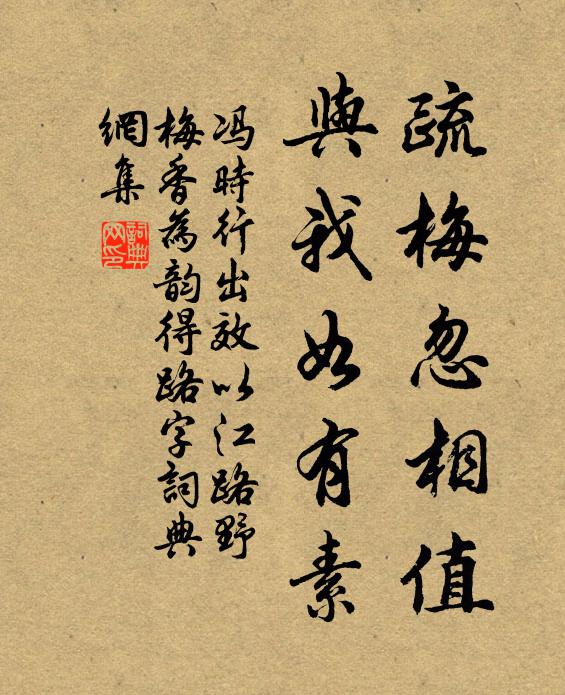 疏梅忽相值
與我如有素
冯時行出效以江路野
梅香為韵得路字詞典
網集
詞典
网印